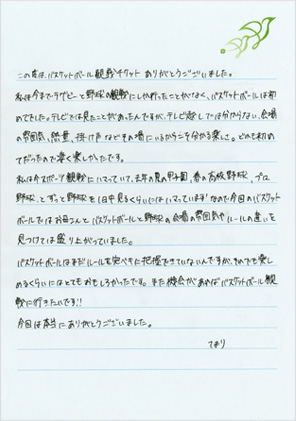 この度は、バスケットボール観戦チケットありがとうございました。
私は今までラグビーと野球の観戦にしか行ったことがなく、バスケットボールは初
めてでした。テレビでは見たことがあったんですが、テレビ越しでは分からない、会場
の雰囲気、熱量、掛け声などその場にいるからこそ分かる楽しさ。どれも初め
てだったので凄く楽しかったです。
私は今スポーツ観戦にハマっていて、去年の夏の甲子園、春の高校野球、プロ
野球、とずっと野球を1日中見るくらいにはハマっています!なので今回のバスケット
ボールではお母さんとバスケットボールと野球の会場の雰囲気やルールの違いを
見つけては盛り上がっていました。
バスケットボールはまだルールを完ぺきに把握できていないんですが、それでも楽し
めるくらいにはとてもおもしろかったです。また機会があればバスケットボール観
戦に行きたいです!!
今回は本当にありがとうございました。